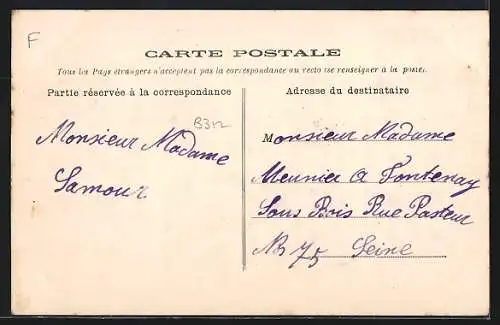 F
CARTE POSTALE
Tous les Pays étrangers n'acceptent pas la correspondance au recto (se renseigner à la poste).
Partie réservée à la correspondance
Adresse du destinataire
B312
Monsieur Madame
Lamour
Monsieur Madame
Meunier a Fontenay
Sous Bois Rue Pasteur
No 75 Seine